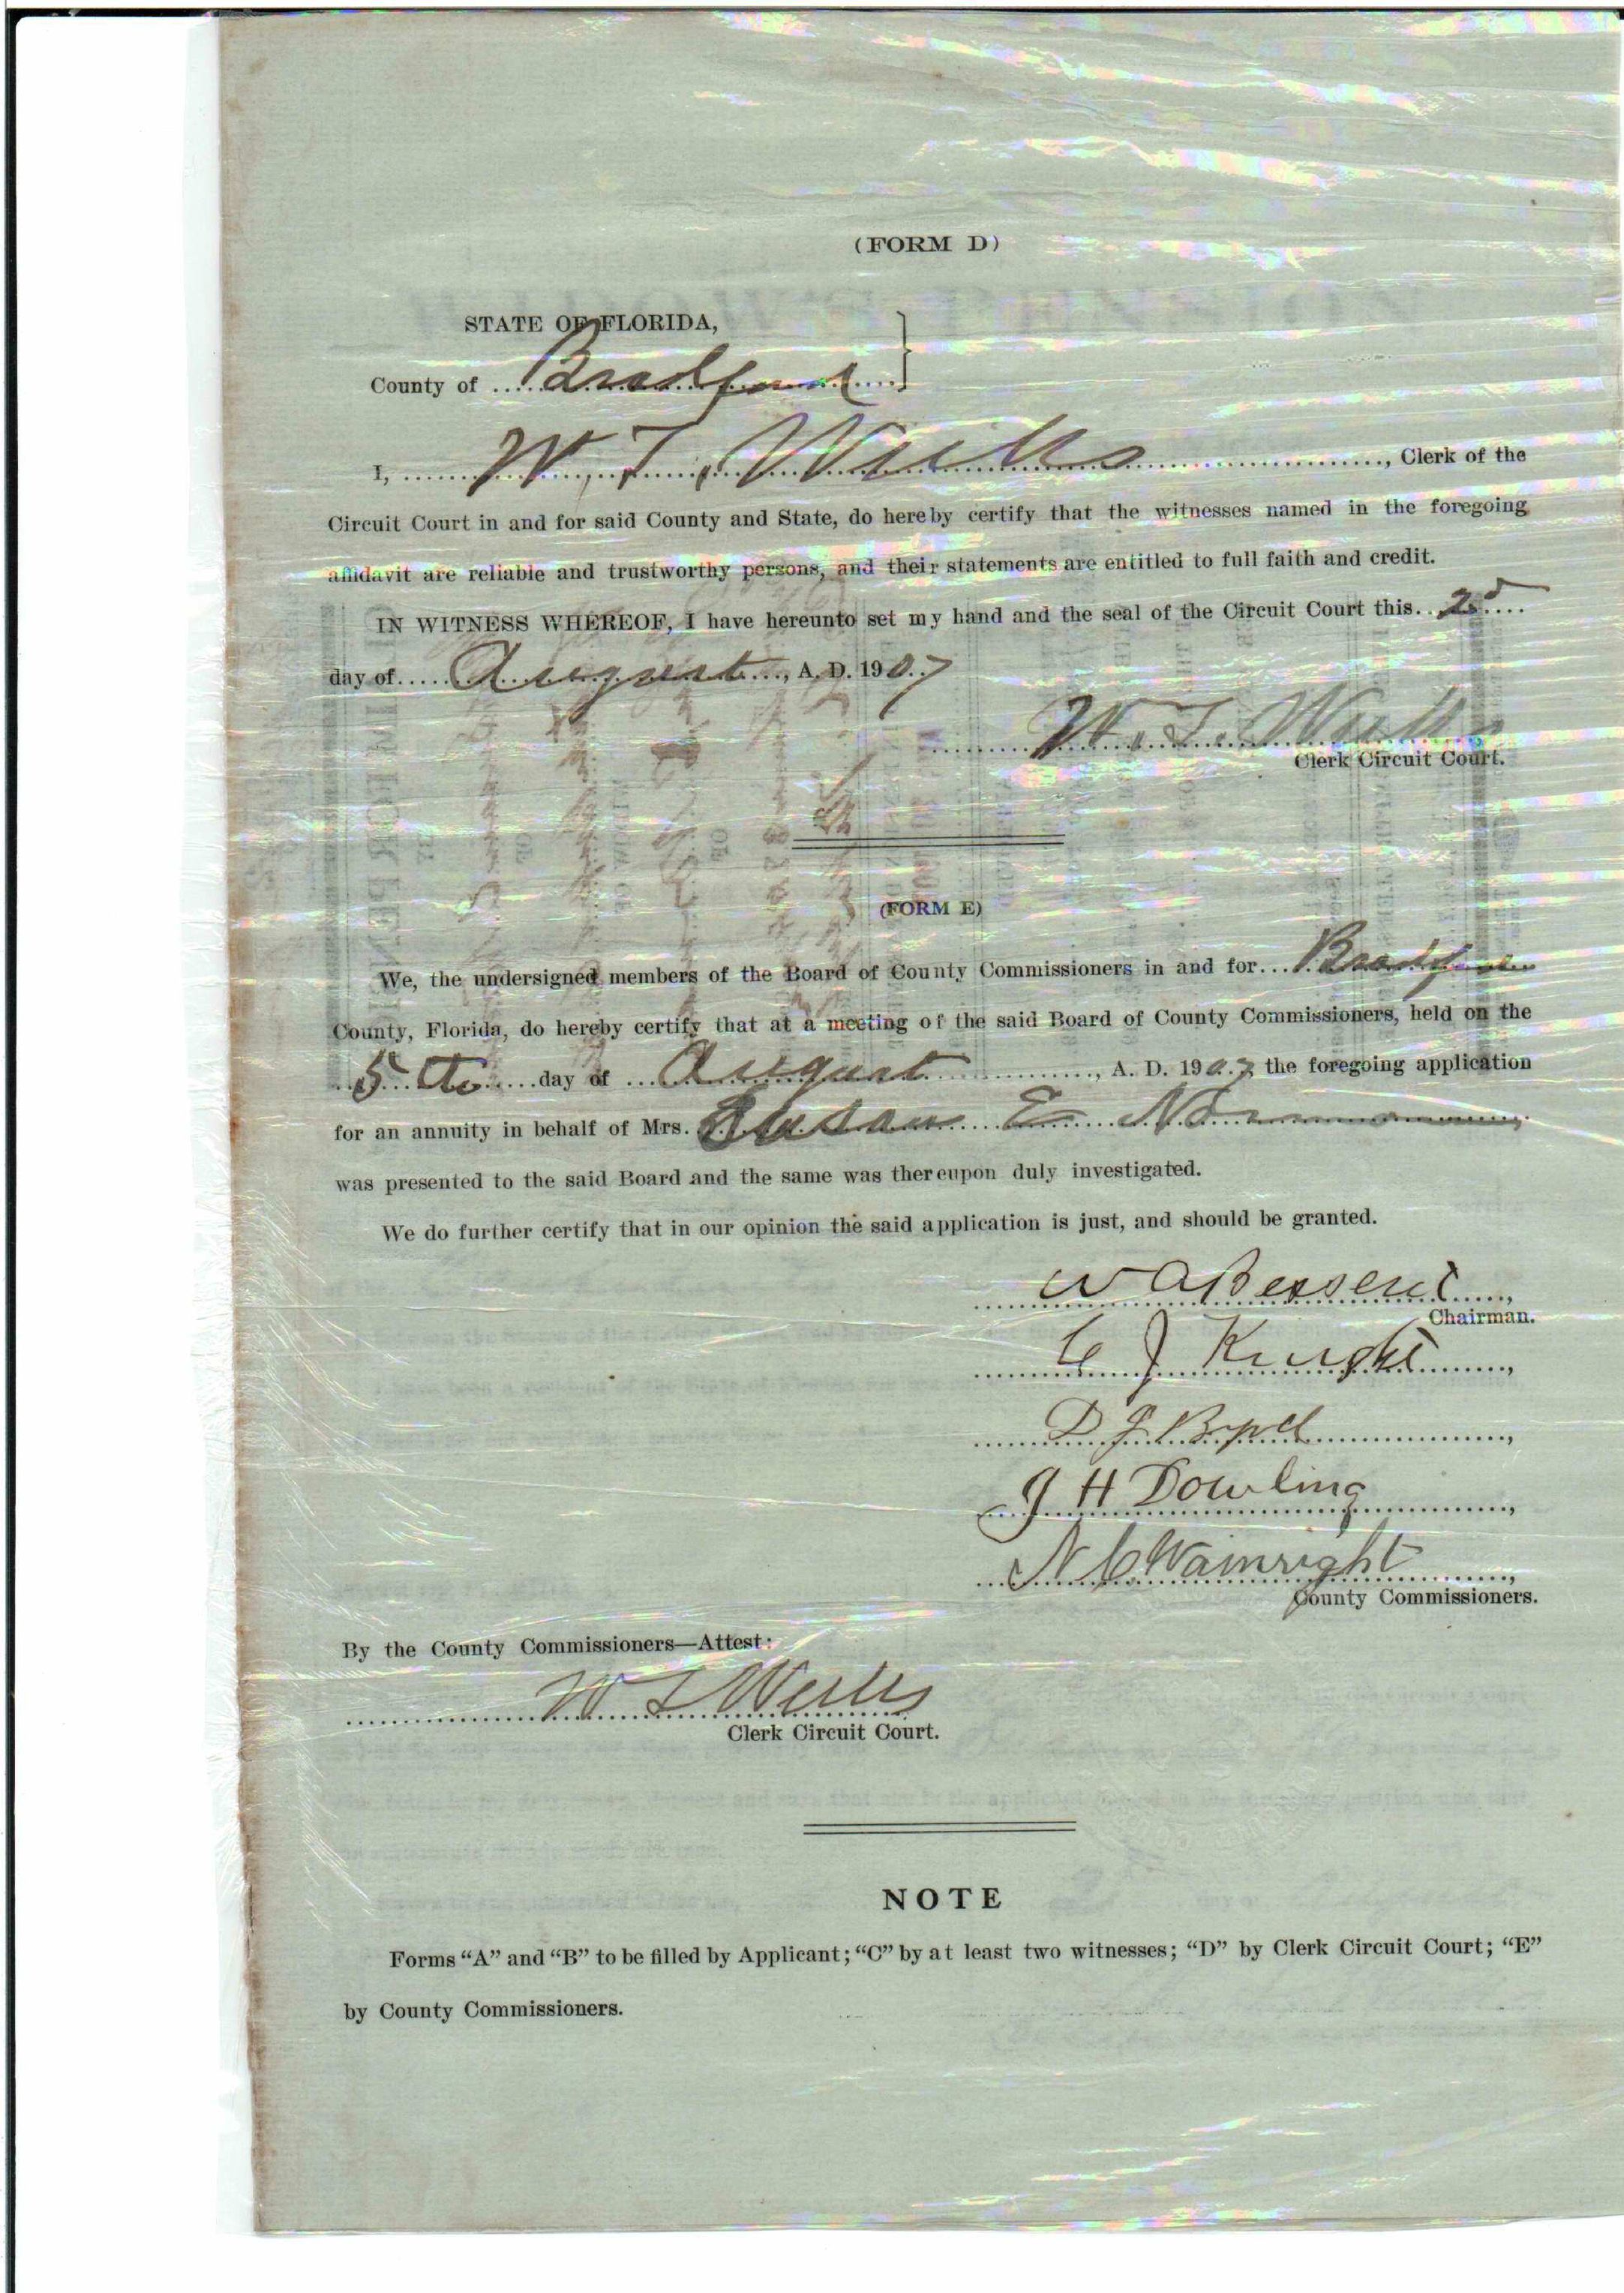 (FORM D)
STATE OF FLORIDA,
County of Bradford
I, W. T. Weeks, Clerk of the
Circuit Court in and for said County and State, do hereby certify that the witnesses named in the foregoing
affidavit are reliable and trustworthy persons, and their statements are entitled to full faith and credit.
IN WITNESS WHEREOF, I have hereunto set my hand and the seal of the Circuit Court this
day of August, A. D. 1907
W. T. Weeks
Clerk Circuit Court.
(FORM E)
We, the undersigned members of the Board of County Commissioners in and for Bradford
County, Florida, do hereby certify that at a meeting of the said Board of County Commissioners, held on the
5th day of August, A. D. 1907, the foregoing application
for an annuity in behalf of Mrs. Susan E. Norman
was presented to the said Board and the same was thereupon duly investigated.
We do further certify that in our opinion the said application is just, and should be granted.
W A Bessent,
Chairman.
C J Knight,
D J Byrd,
J H Dowling,
N C Wainright,
County Commissioners.
By the County Commissioners—Attest:
W T Weeks
Clerk Circuit Court.
NOTE
Forms “A” and “B” to be filled by Applicant; “C” by at least two witnesses; “D” by Clerk Circuit Court; “E”
by County Commissioners.